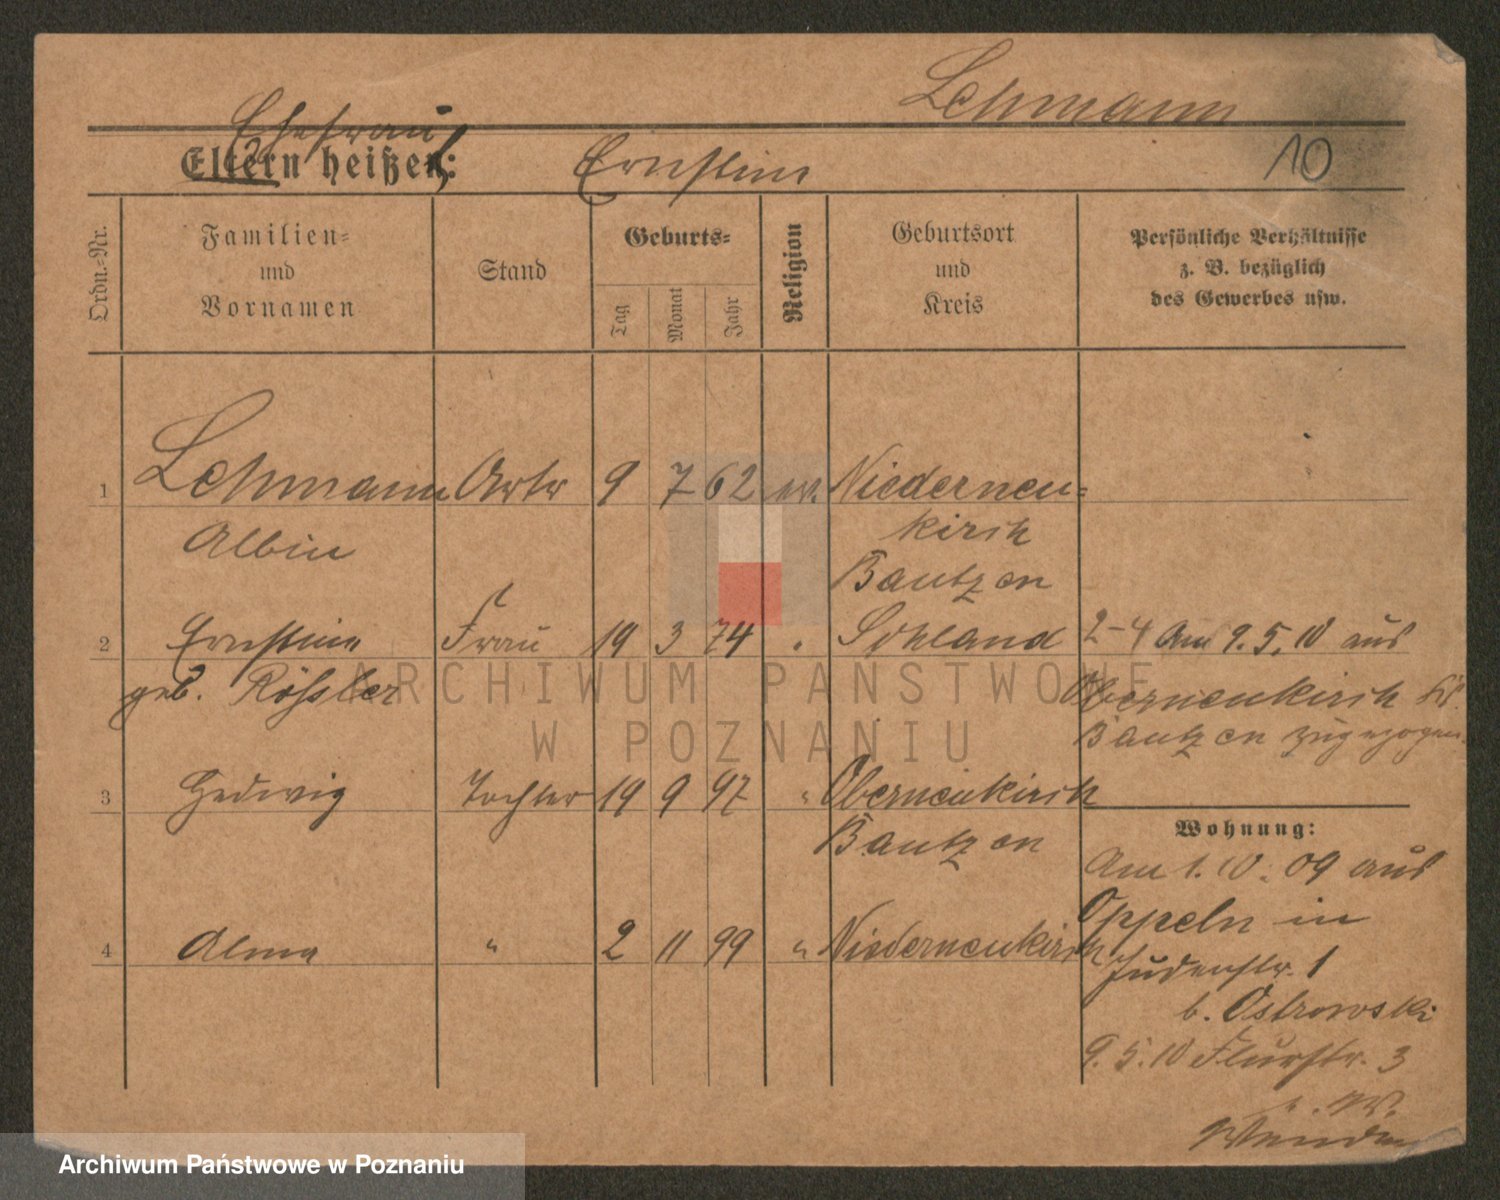 Lehmann
Ehefrau
Eltern heißen: Ernstine
10
Ordn.-Nr.
Familien-
und
Vornamen
Stand
Geburts-
Tag
Monat
Jahr
Religion
Geburtsort
und
Kreis
Persönliche Verhältnisse
z. B. bezüglich
des Gewerbes usw.
1 Lehmann Arbtr 9 7 62 ev. Niederneu-
Albin kirch
Bautzen
2 Ernstine Frau 19 3 74 " Sohland 2-4 Am 9.5.10 aus
geb. Rößler Oberneukirch Kr.
Bautzen zugezogen.
3 Hedwig Tochter 19 9 97 " Oberneukirch
Bautzen
Wohnung:
Am 1.10.09 aus
Oppeln in
4 Alma " 2 11 99 " Niederneukirch
Judenstr. 1
b. Ostrowski
9.5.10 Flurstr. 3
ARCHIWUM PAŃSTWOWE
W POZNANIU
Archiwum Państwowe w Poznaniu